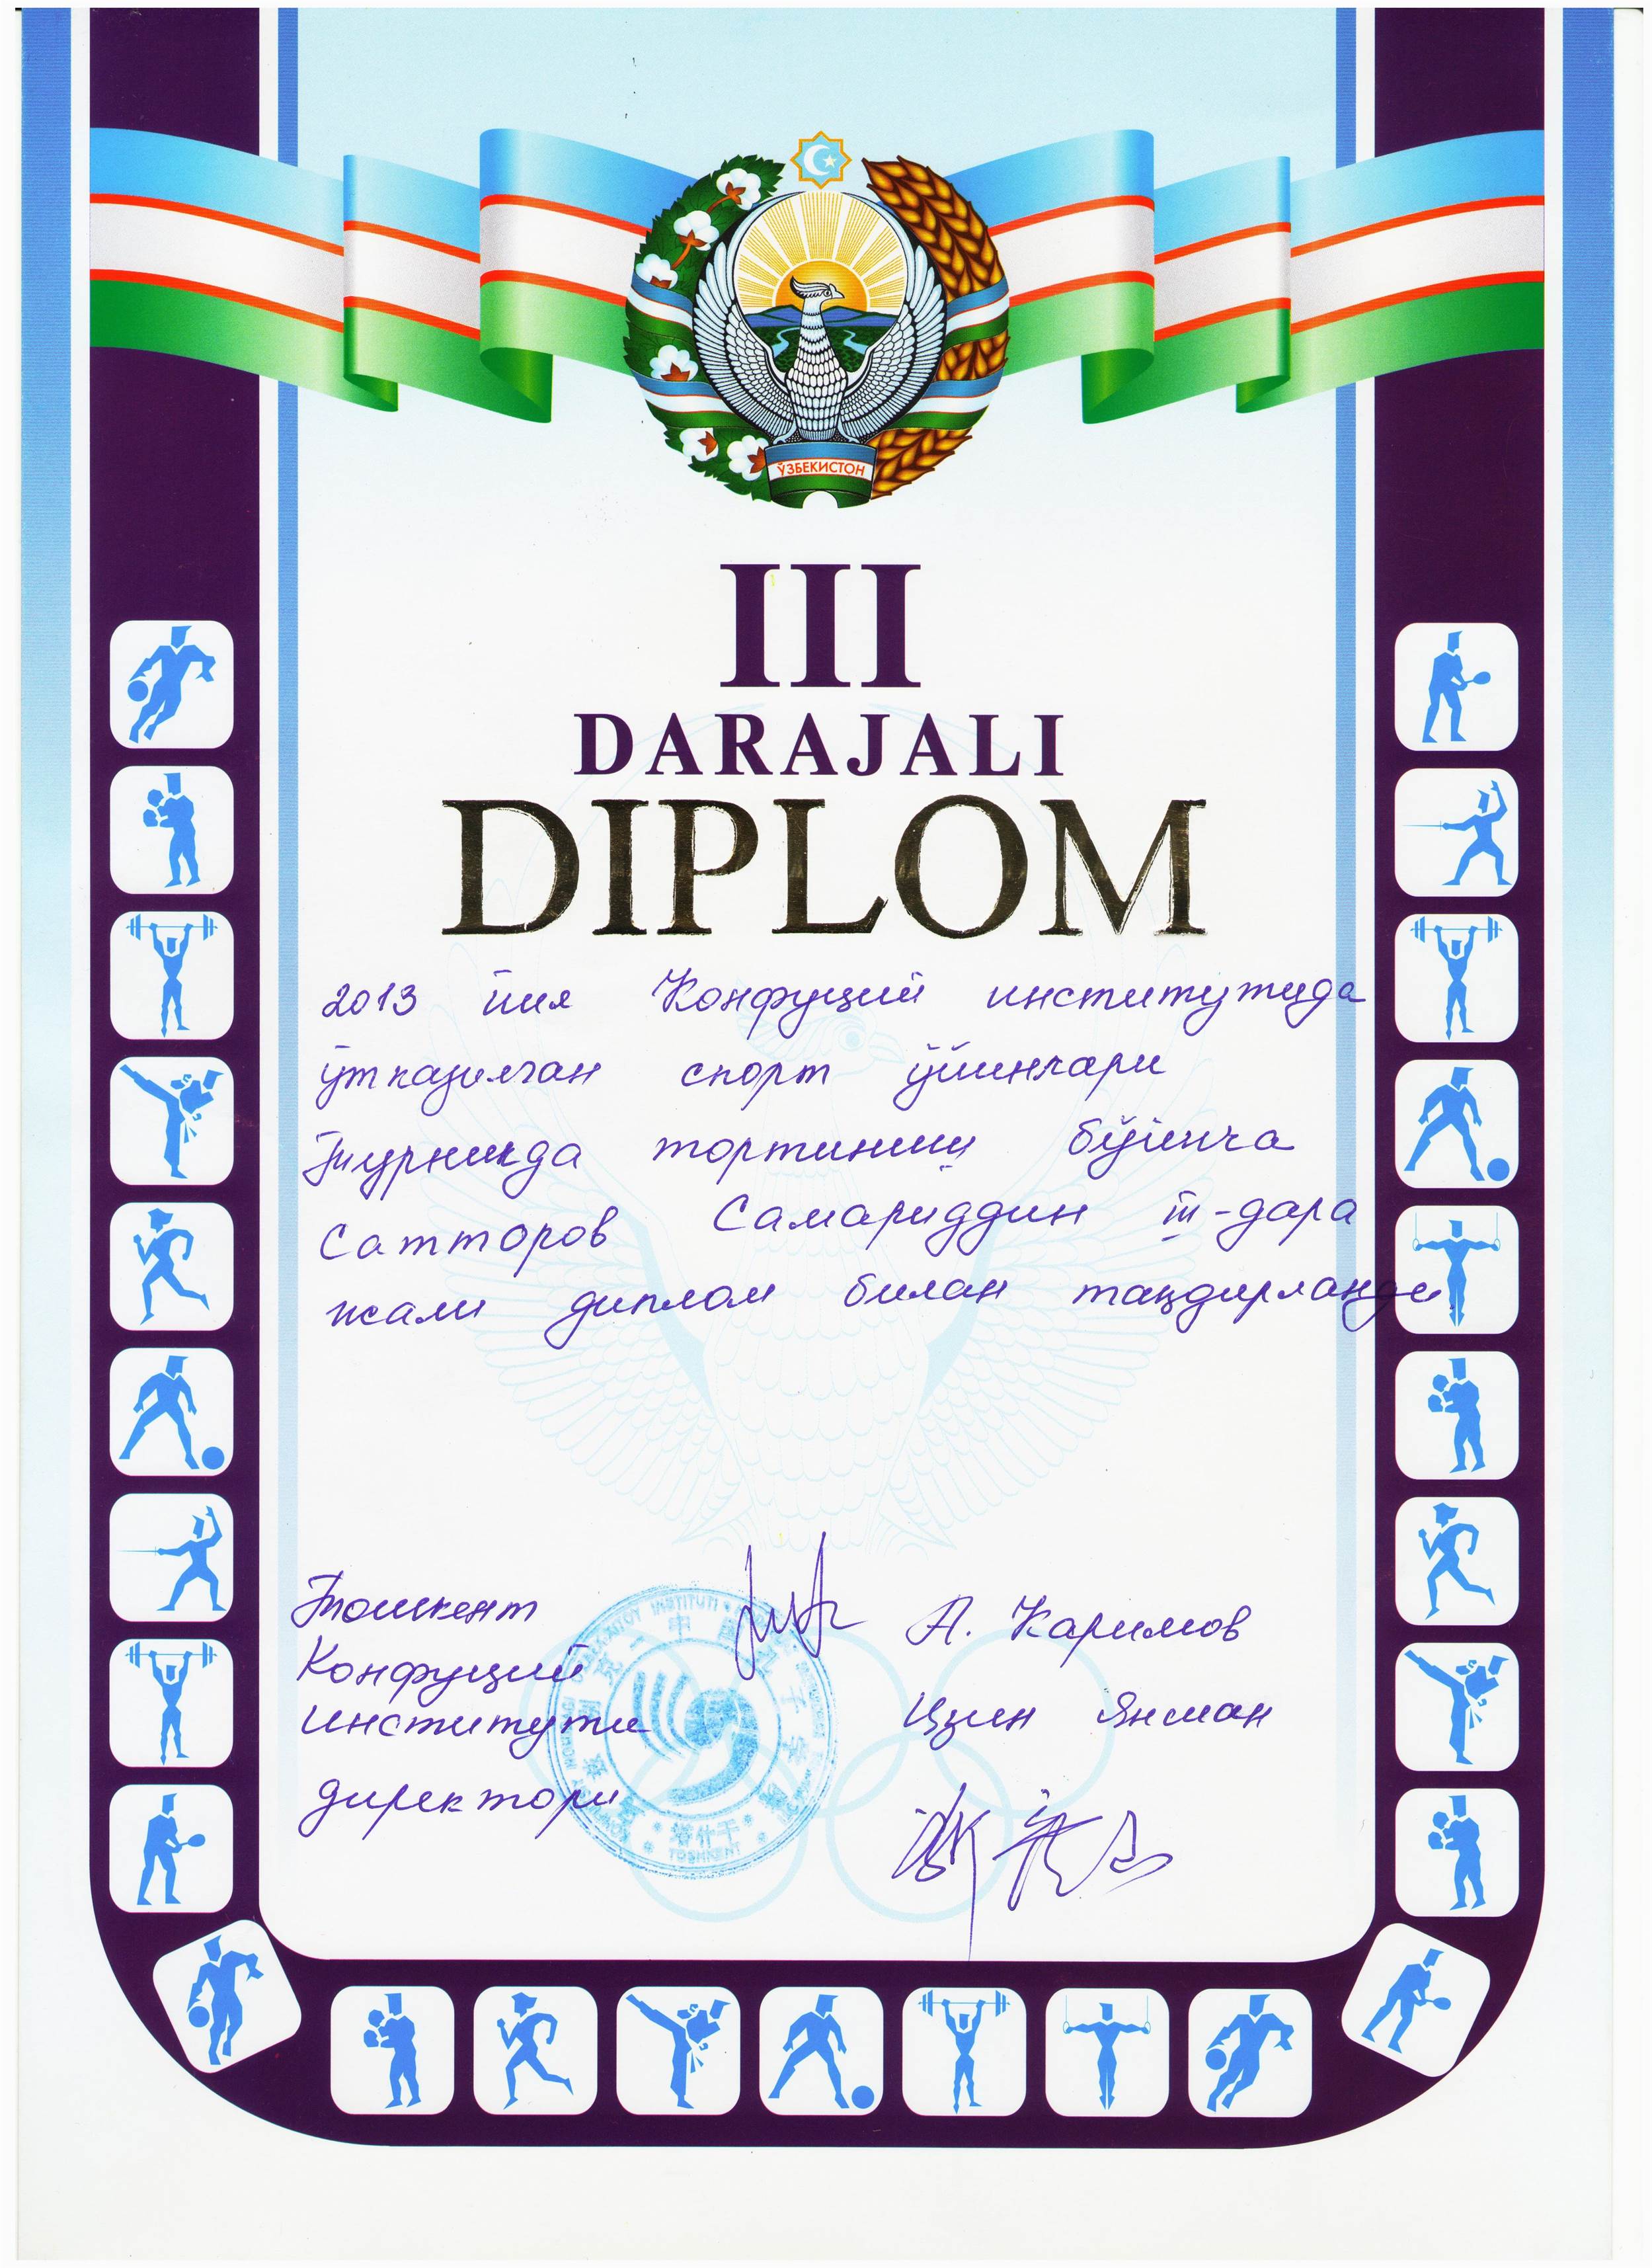 ЎЗБЕКИСТОН
III
DARAJALI
DIPLOM
2013 йил Конфуций институтида
ўтказилган спорт ўйинлари
Турникда тортиниш бўйича
Сатторов Самариддин III-дара
жали диплом билан тақдирланди
Тошкент
Конфуций
институти
директори
А. Каримов
Цзин Янман
塔什干
TOSHKENT